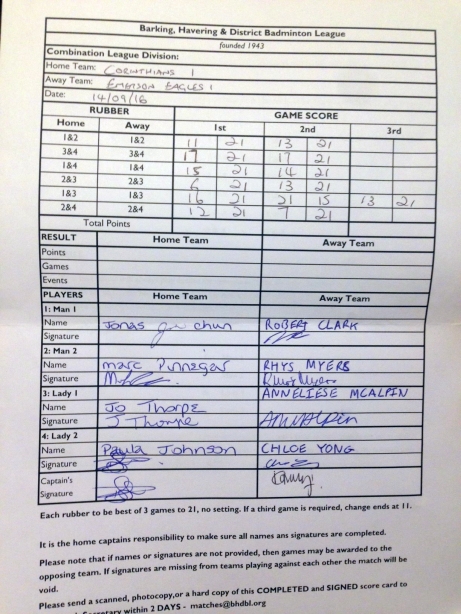 Barking, Havering & District Badminton League
founded 1943
Combination League Division:
Home Team: CORINTHIANS 1
Away Team: EMERSON EAGLES 1
Date: 14/09/16
RUBBER GAME SCORE
Home Away 1st 2nd 3rd
1&2 1&2 11 21 13 21
3&4 3&4 17 21 17 21
1&4 1&4 15 21 14 21
2&3 2&3 6 21 13 21
1&3 1&3 16 21 21 15 13 21
2&4 2&4 12 21 7 21
Total Points
RESULT Home Team Away Team
Points
Games
Events
PLAYERS Home Team Away Team
1: Man 1
Name Jonas chun ROBERT CLARK
Signature
2: Man 2
Name Marc Pinnegar RHYS MYERS
Signature Rhys Myers
3: Lady 1 ANNELIESE MCALPIN
Name Jo Thorpe
Signature J Thorpe AMcAlpin
4: Lady 2
Name Paula Johnson CHLOE YONG
Signature
Captain's
Signature
Each rubber to be best of 3 games to 21, no setting. If a third game is required, change ends at 11.
It is the home captains responsibility to make sure all names ans signatures are completed.
Please note that if names or signatures are not provided, then games may be awarded to the
opposing team. If signatures are missing from teams playing against each other the match will be
void.
Please send a scanned, photocopy,or a hard copy of this COMPLETED and SIGNED score card to
Secretary within 2 DAYS - matches@bhdbl.org